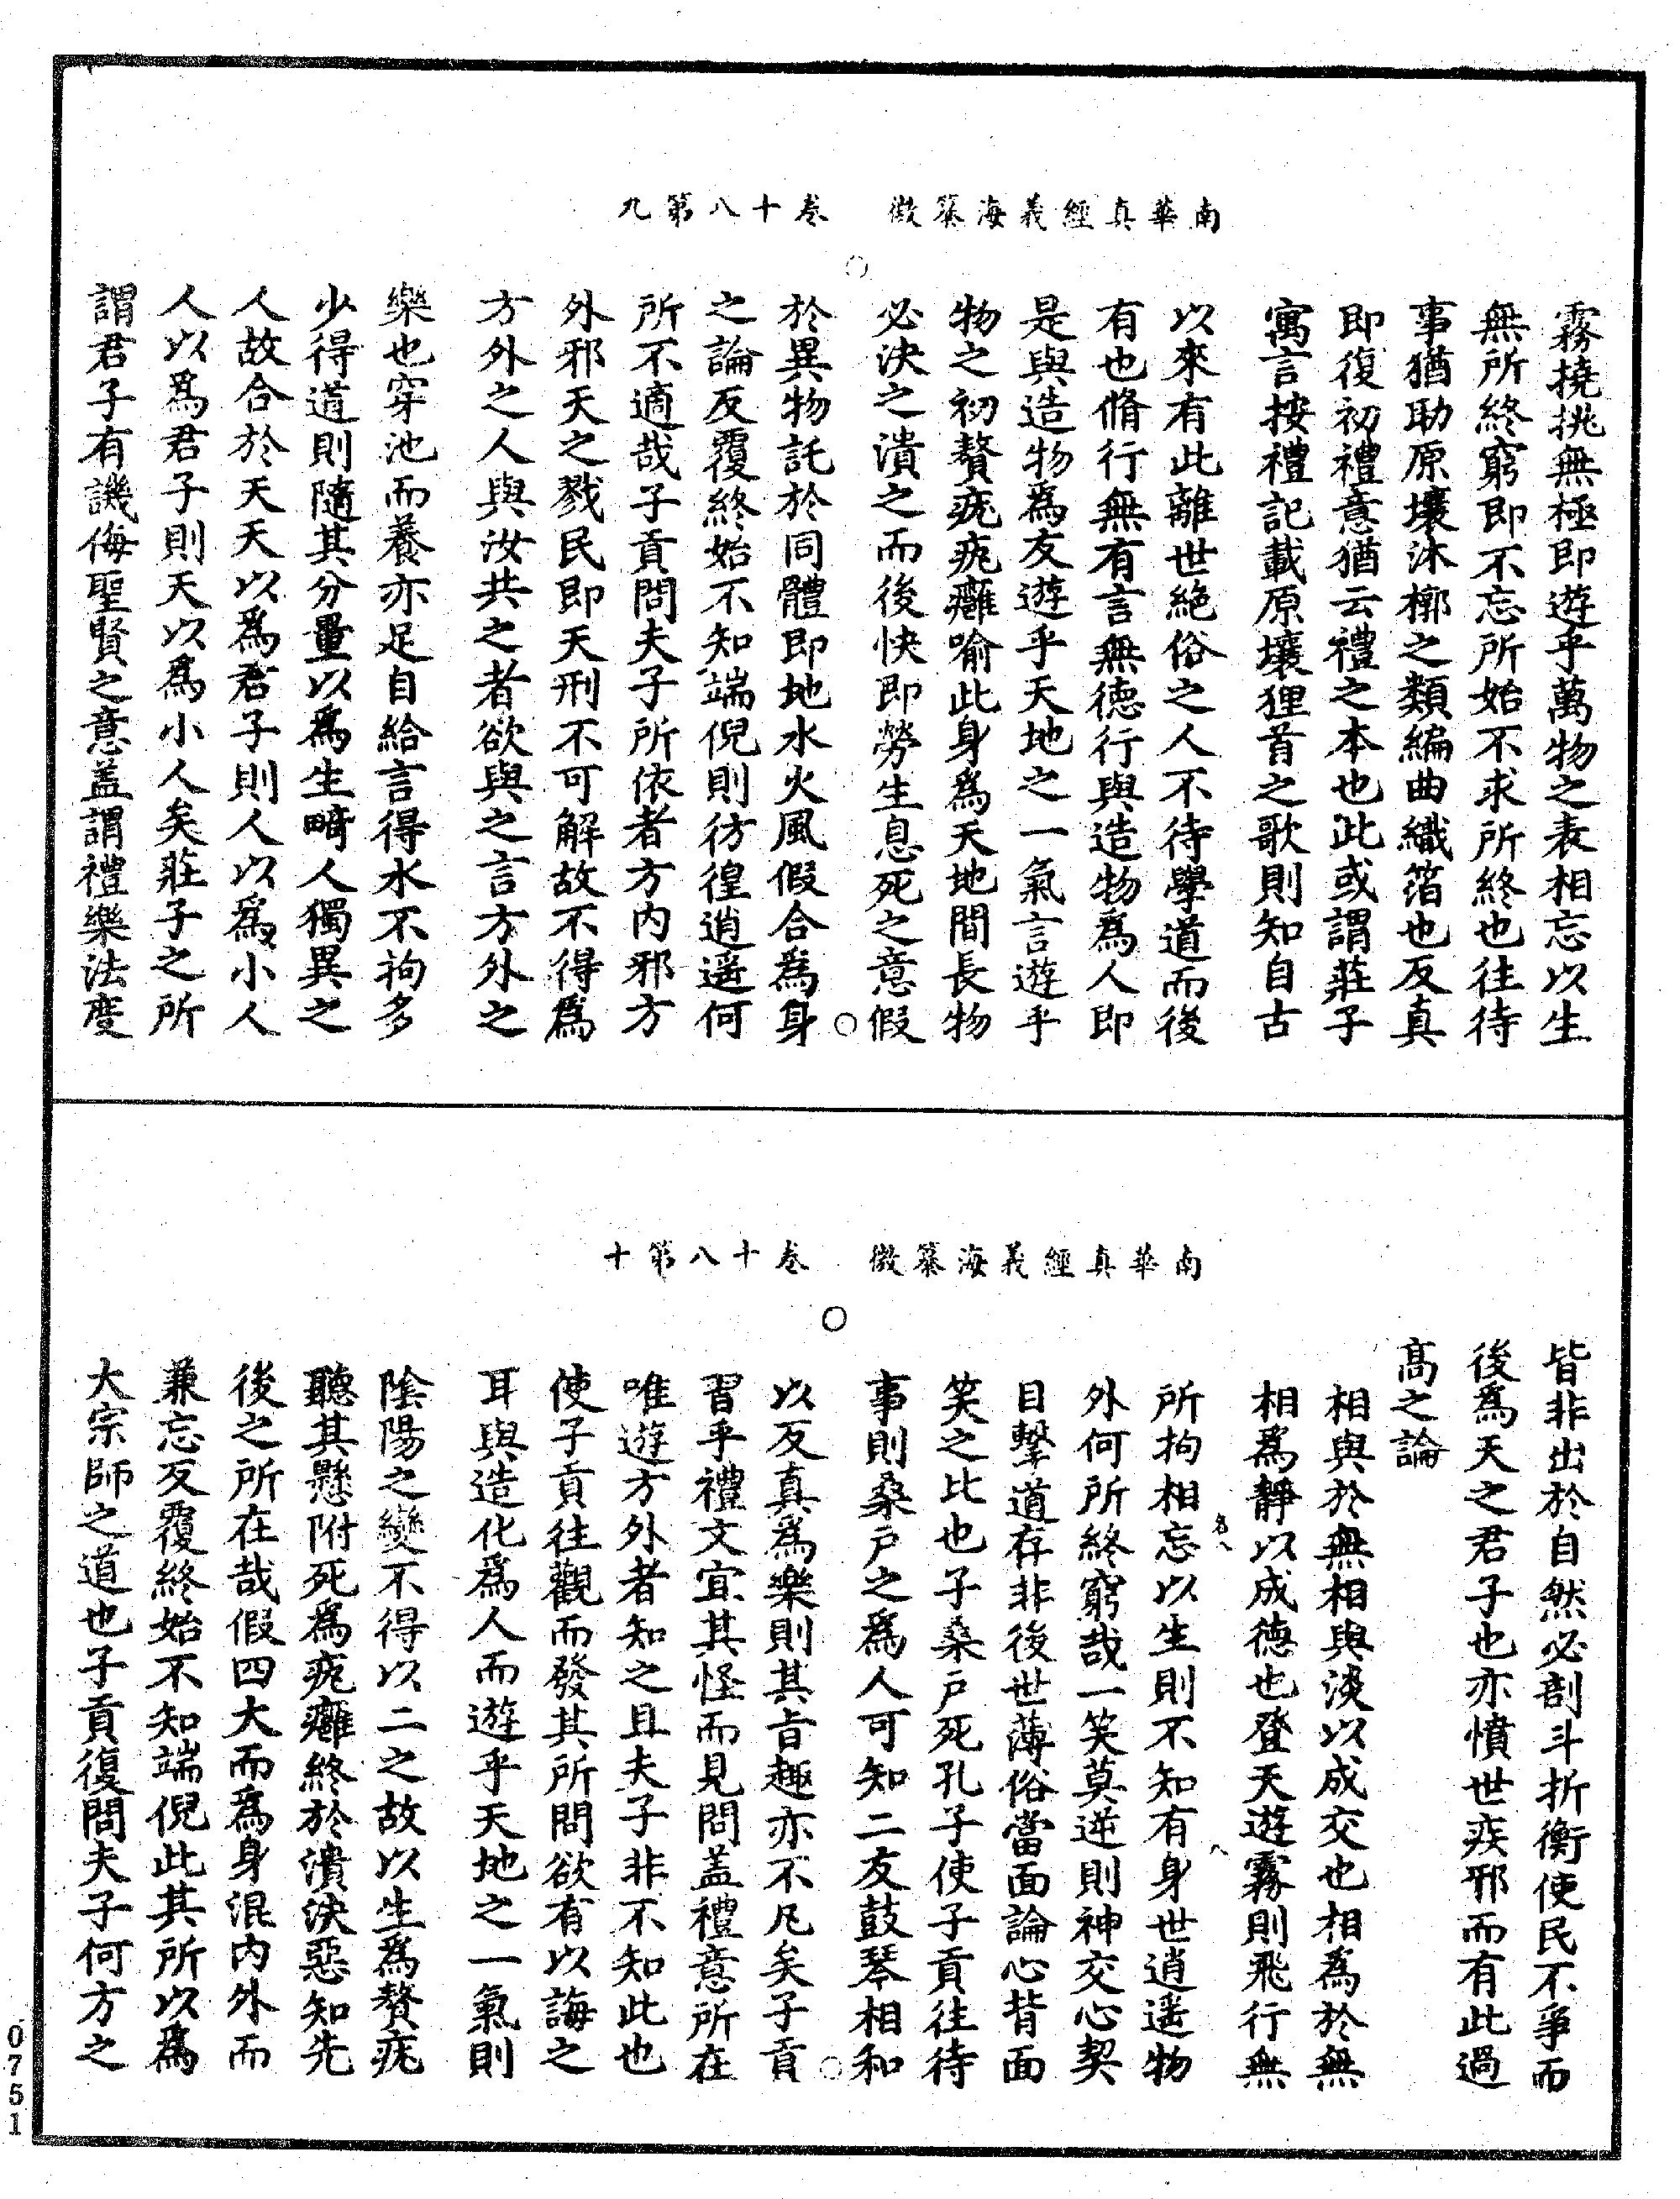 南華真經義海纂微　卷十八第九
霧撓挑無極即遊乎萬物之表相忘以生
無所終窮即不忘所始不求所終也往待
事猶助原壤沐槨之類編曲織箔也反真
即復初禮意猶云禮之本也此或謂莊子
寓言按禮記載原壤狸首之歌則知自古
以來有此離世絶俗之人不待學道而後
有也脩行無有言無德行與造物為人即
是與造物為友遊乎天地之一氣言遊乎
物之初贅疣疣癰喻此身為天地間長物
必決之潰之而後快即勞生息死之意假
於異物託於同體即地水火風假合為身
之論反覆終始不知端倪則彷徨逍遥何
所不適哉子貢問夫子所依者方内邪方
外邪天之戮民即天刑不可解故不得為
方外之人與汝共之者欲與之言方外之
樂也穿池而養亦足自給言得水不拘多
少得道則隨其分量以為生畸人獨異之
人故合於天天以為君子則人以為小人
人以為君子則天以為小人矣莊子之所
謂君子有譏侮聖賢之意蓋謂禮樂法度
南華真經義海纂微　卷十八第十
皆非出於自然必剖斗折衡使民不爭而
後為天之君子也亦憤世疾邪而有此過
高之論
相與於無相與淡以成交也相為於無
相為靜以成德也登天遊霧則飛行無
所拘相忘以生則不知有身世逍遥物
外何所終窮哉一笑莫逆則神交心契
目擊道存非後世薄俗當面論心背面
笑之比也子桑戸死孔子使子貢往待
事則桑戸之為人可知二友鼓琴相和
以反真為樂則其旨趣亦不凡矣子貢
習乎禮文宜其怪而見問蓋禮意所在
唯遊方外者知之且夫子非不知此也
使子貢往觀而發其所問欲有以誨之
耳與造化為人而遊乎天地之一氣則
陰陽之變不得以二之故以生為贅疣
聽其懸附死為疣癰終於潰決惡知先
後之所在哉假四大而為身混内外而
兼忘反覆終始不知端倪此其所以為
大宗師之道也子貢復問夫子何方之
0751